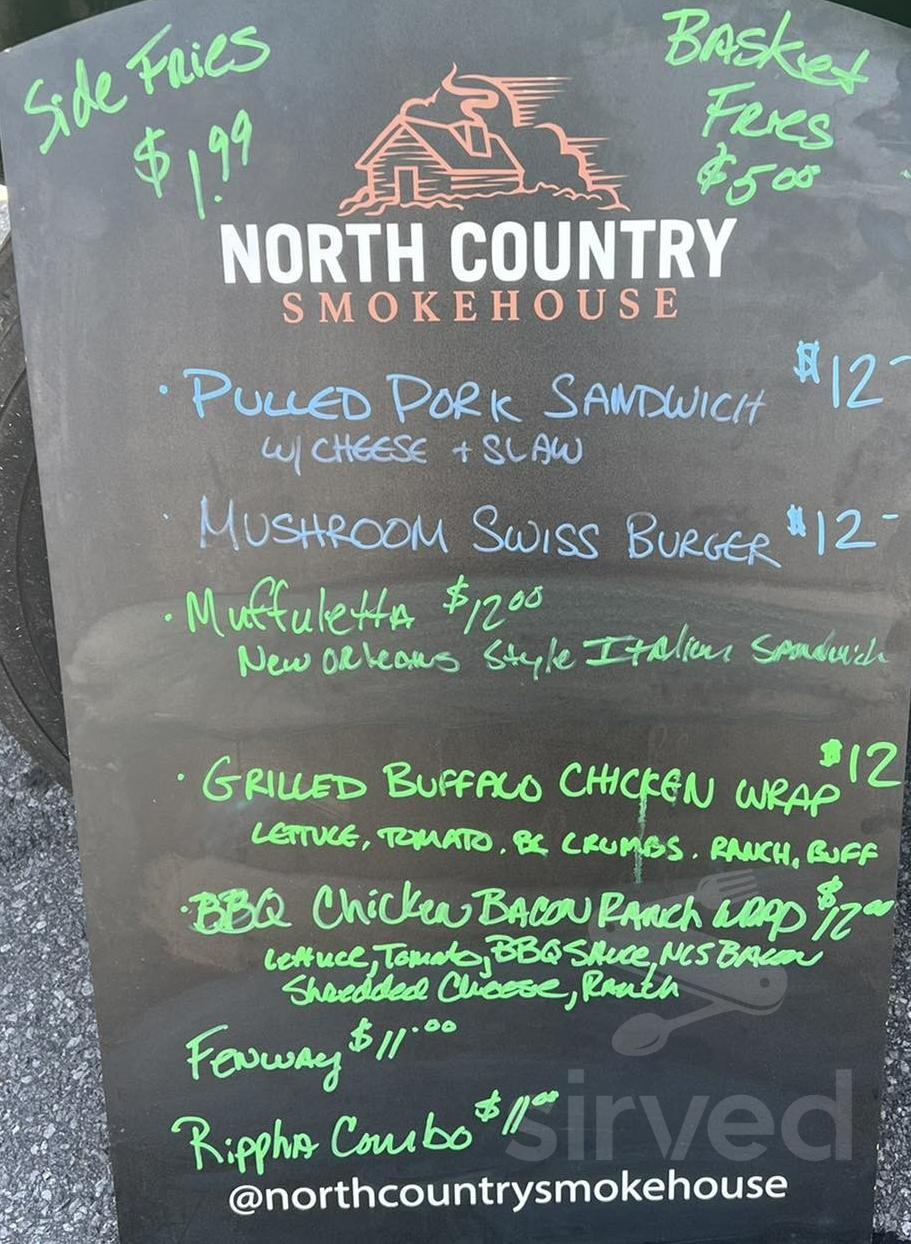 Side Fries
$1.99
Basket
Fries
$5.00
NORTH COUNTRY
SMOKEHOUSE
• PULLED PORK SANDWICH $12-
W/ CHEESE + SLAW
• MUSHROOM SWISS BURGER $12-
• Muffuletta $12.00
New Orleans Style Italian Sandwich
• GRILLED BUFFALO CHICKEN WRAP $12
LETTUCE, TOMATO, BC CRUMBS, RANCH, BUFF
• BBQ Chicken BACON RANCH WRAP $12.00
Lettuce, Tomato, BBQ SAUCE, NCS BACON
Shredded Cheese, Ranch
FENWAY $11.00
Rippha Combo $11.00
sirved
@northcountrysmokehouse